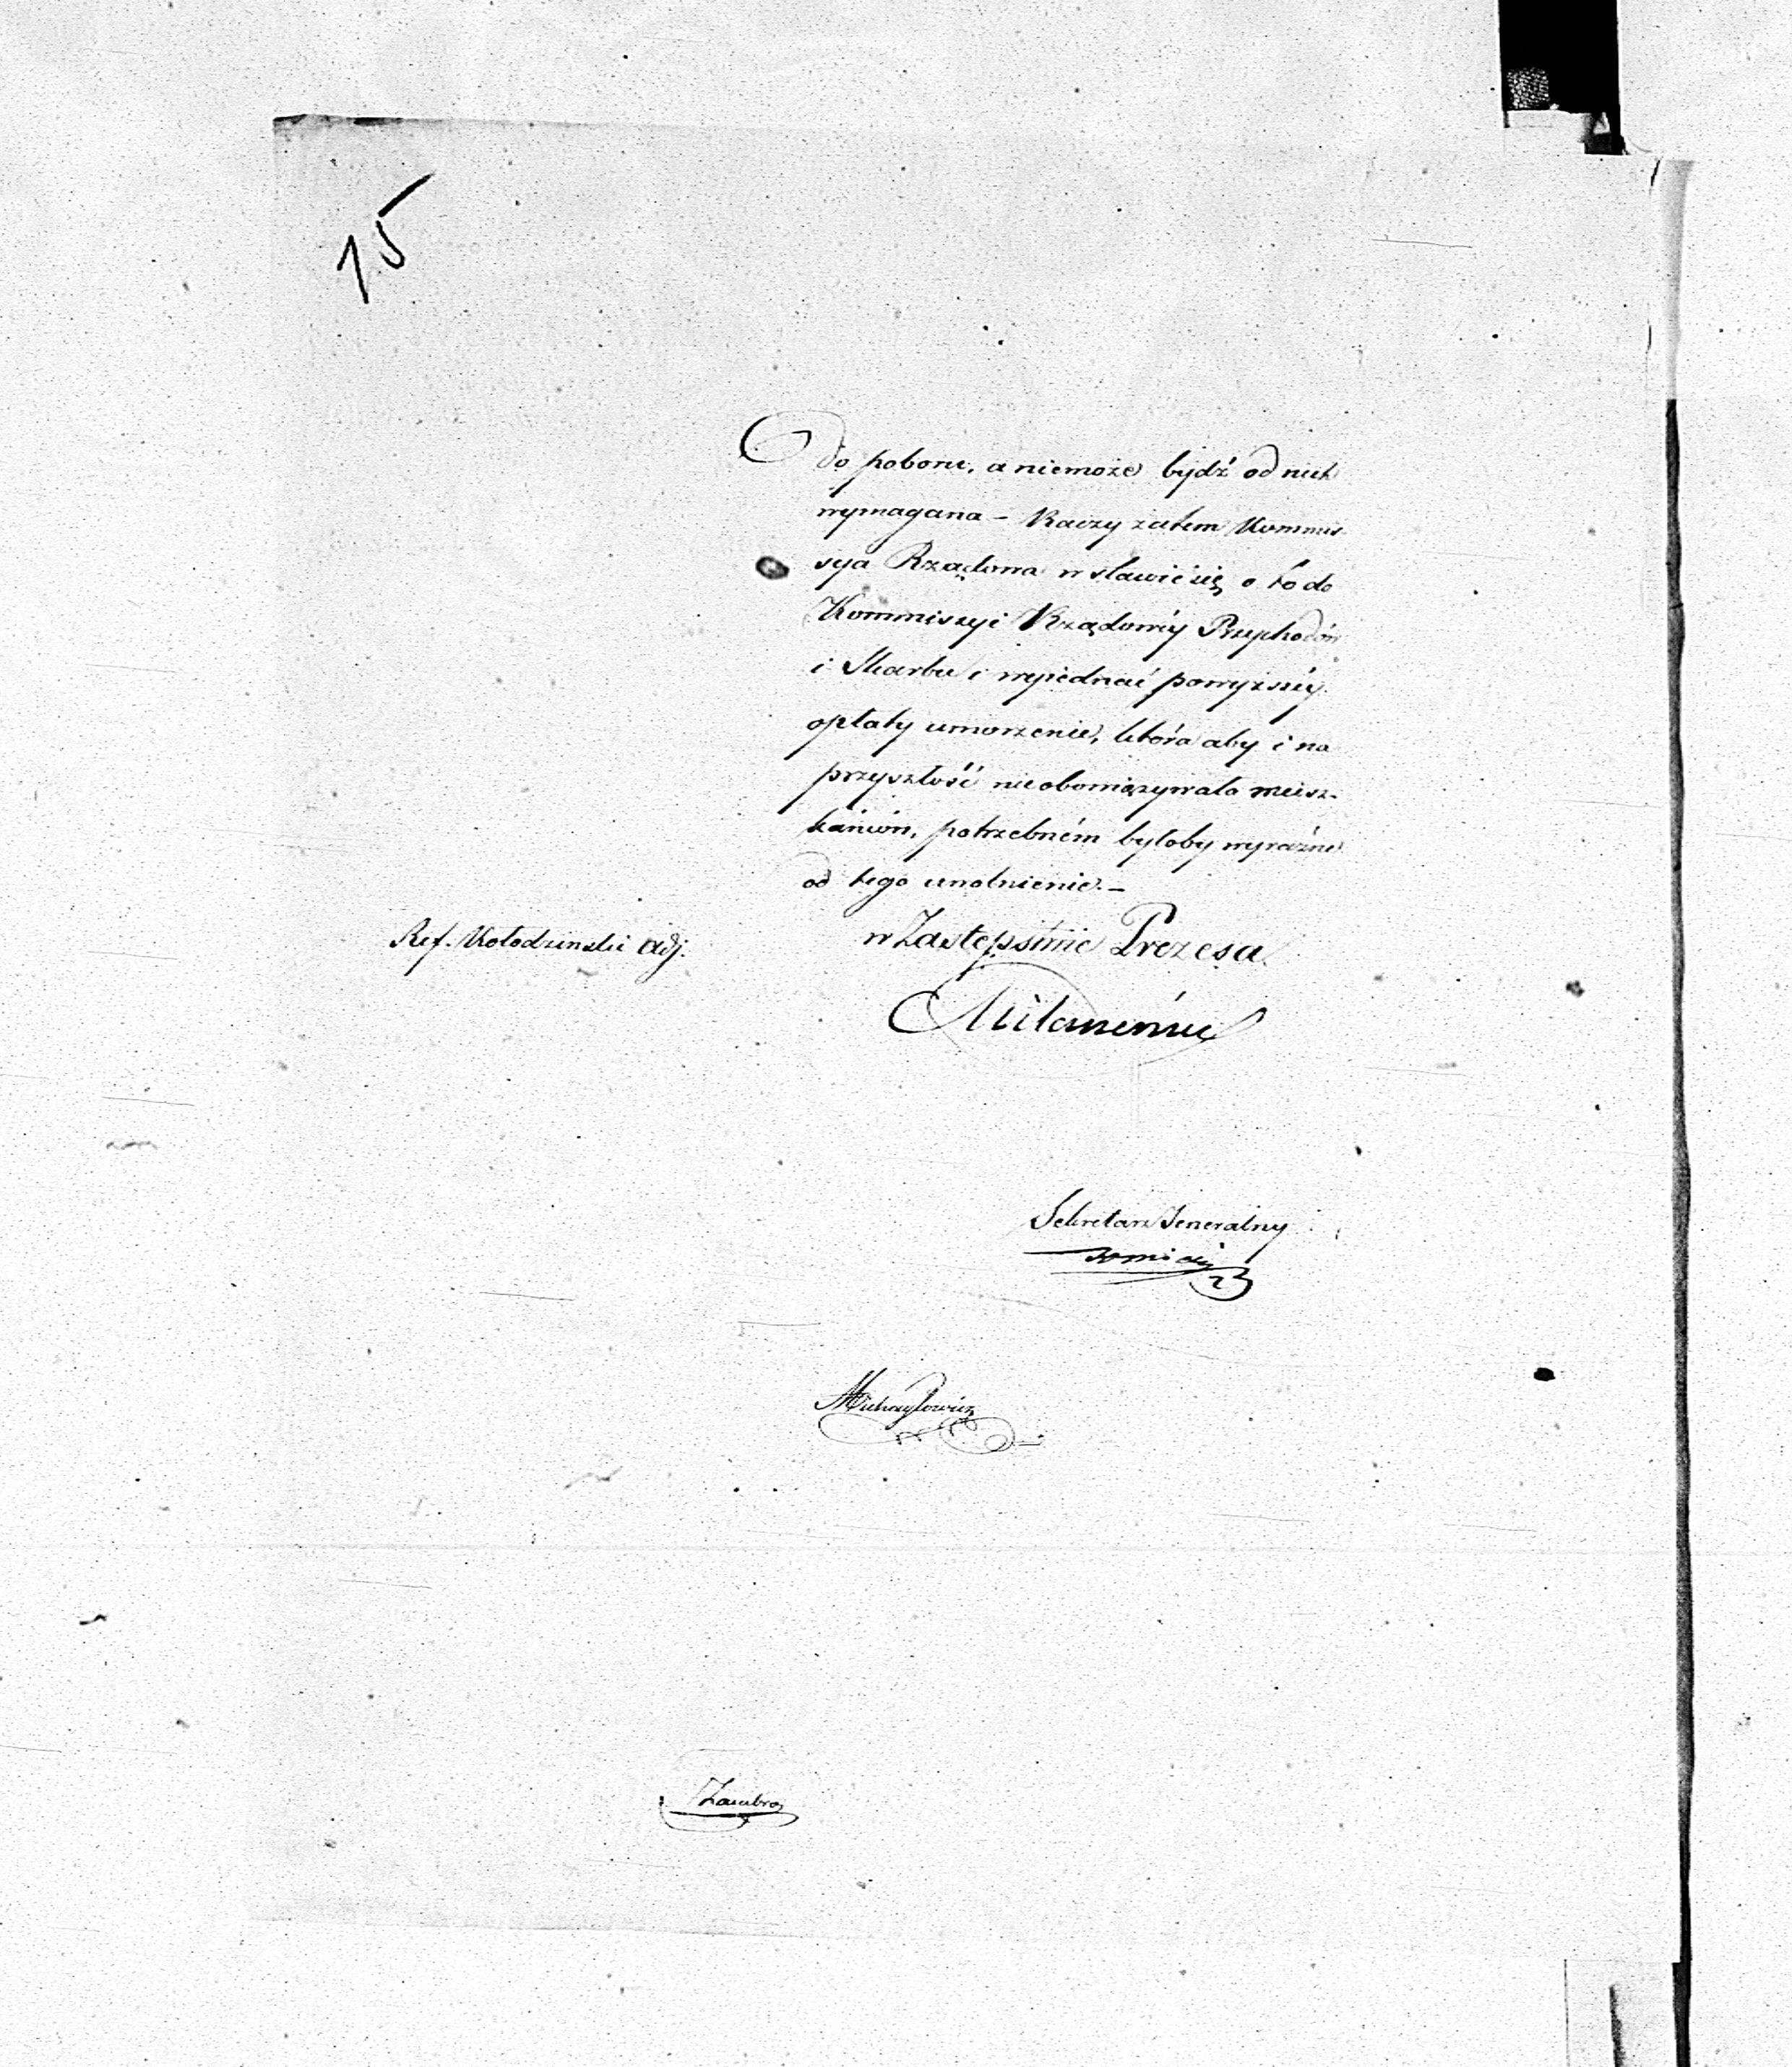 15
do poboru, a niemoże bydź od nich
wymagana – Raczy zatem Kommis-
sya Rządowa wstawić się o to do
Kommissyi Rządowéy Przychodów
i Skarbu i wyiednać powyższéy
opłaty umorzenie, która aby i na
przyszłość nieobowiązywała miesz-
kańców, potrzebném byłoby wyraźne
od tego uwolnienie. –
w Zastępstwie Prezesa
Ref. Kołodzinski Adj.
Sekretarz Jeneralny
Michayłowicz